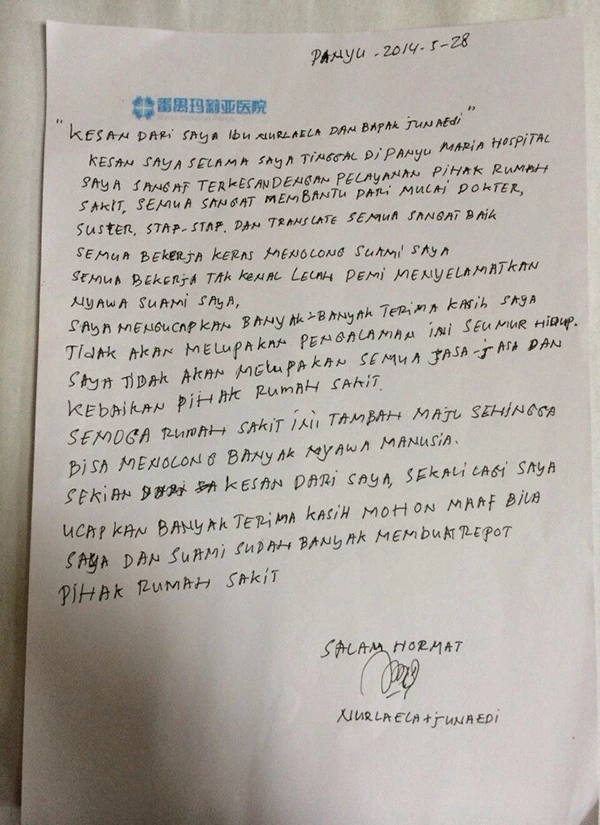 PANYU - 2014-5-28
番禺玛莉亚医院
"KESAN DARI SAYA IBU NURLAELA DAN BAPAK JUNAEDI"
KESAN SAYA SELAMA SAYA TINGGAL DI PANYU MARIA HOSPITAL
SAYA SANGAT TERKESAN DENGAN PELAYANAN PIHAK RUMAH
SAKIT, SEMUA SANGAT MEMBANTU DARI MULAI DOKTER,
SUSTER, STAP-STAP. DAN TRANSLATE SEMUA SANGAT BAIK
SEMUA BEKERJA KERAS MENOLONG SUAMI SAYA
SEMUA BEKERJA TAK KENAL LELAH DEMI MENYELAMATKAN
NYAWA SUAMI SAYA,
SAYA MENGUCAPKAN BANYAK-BANYAK TERIMA KASIH SAYA
TIDAK AKAN MELUPAKAN PENGALAMAN INI SEUMUR HIDUP.
SAYA TIDAK AKAN MELUPAKAN SEMUA JASA-JASA DAN
KEBAIKAN PIHAK RUMAH SAKIT.
SEMOGA RUMAH SAKIT INI TAMBAH MAJU SEHINGGA
BISA MENOLONG BANYAK NYAWA MANUSIA.
SEKIAN KESAN DARI SAYA, SEKALI LAGI SAYA
UCAPKAN BANYAK TERIMA KASIH MOHON MAAF BILA
SAYA DAN SUAMI SUDAH BANYAK MEMBUAT REPOT
PIHAK RUMAH SAKIT
SALAM HORMAT
NURLAELA+JUNAEDI